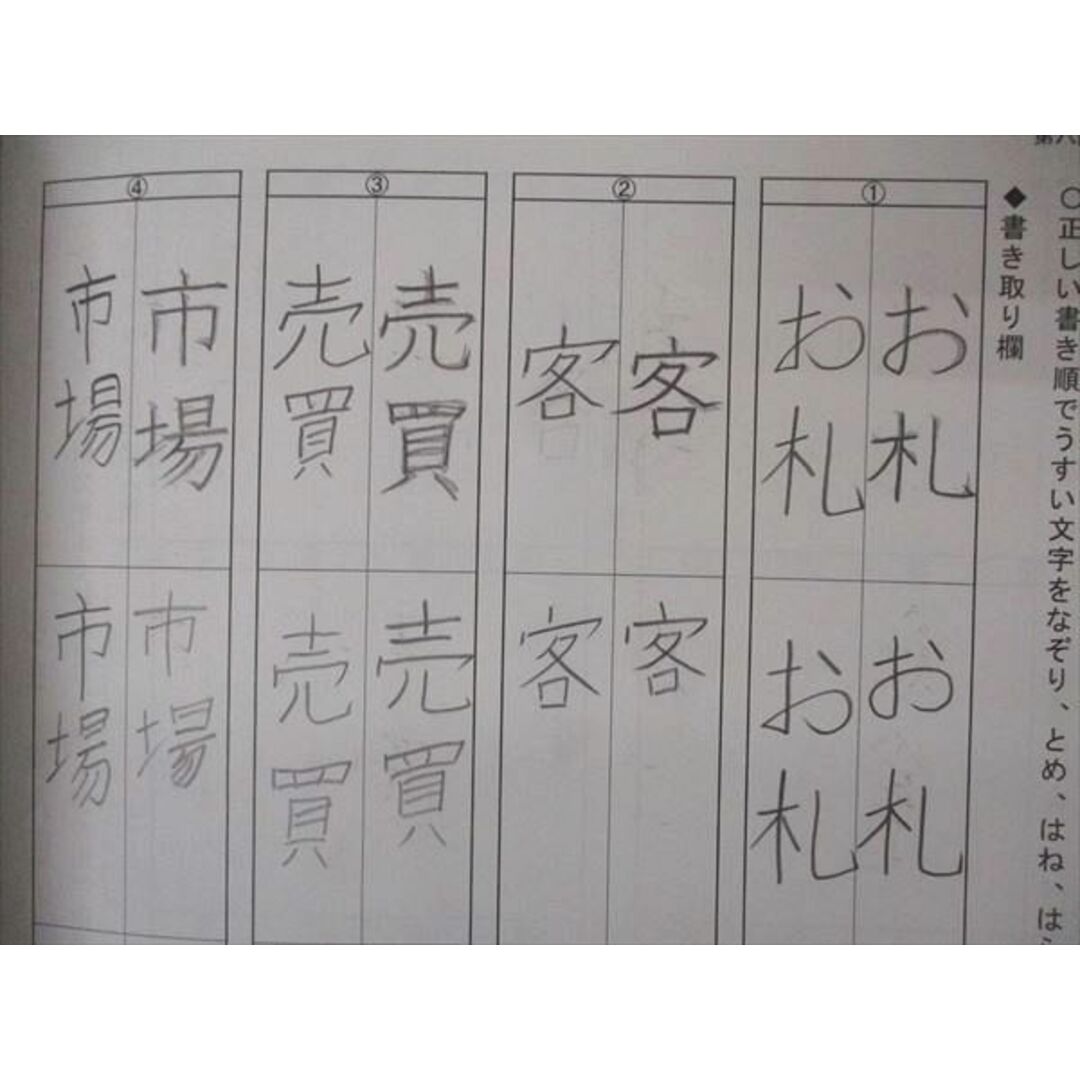 ○正しい書き順でうすい文字をなぞり、とめ、はね、は
◆書き取り欄
①
お札
お札
お札
お札
②
客
客
客
客
③
売買
売買
売買
売買
④
市場
市場
市場
市場